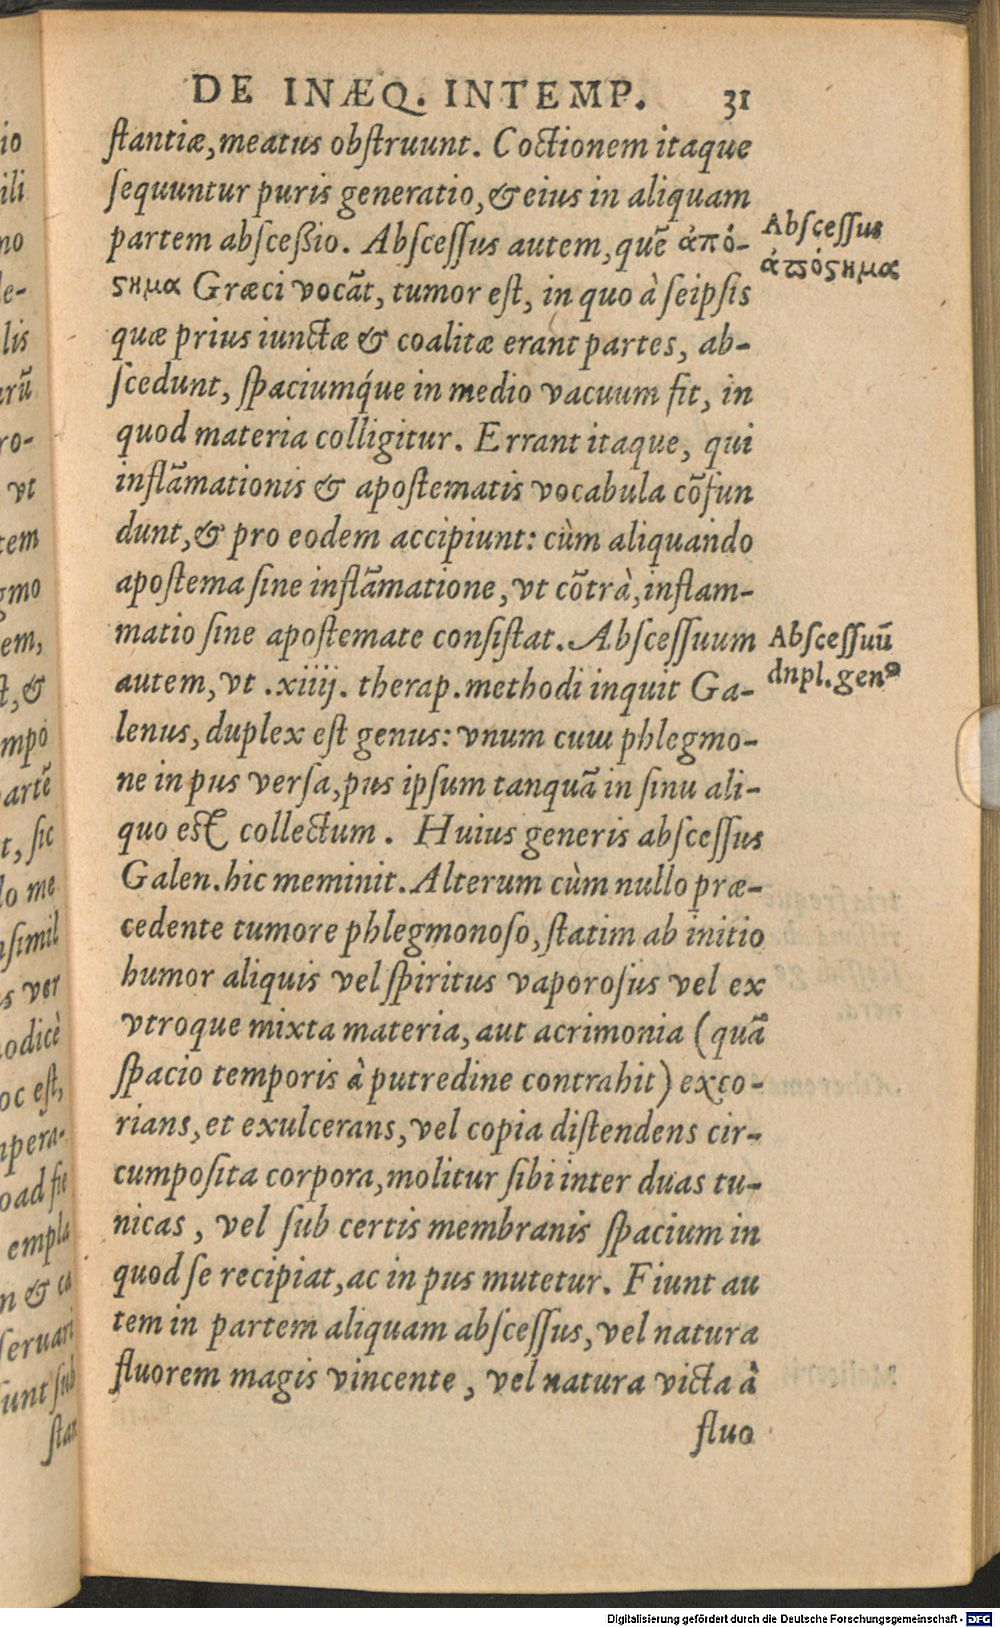 DE INÆQ. INTEMP. 31
ſtantiæ, meatus obſtruunt. Coctionem itaque
ſequuntur puris generatio, & eius in aliquam
partem abſceßio. Abſceſſus autem, quē ἀπό-
ϛημα Græci vocāt, tumor eſt, in quo à ſeipſis
quæ prius iunctæ & coalitæ erant partes, ab-
ſcedunt, ſpaciumq́ue in medio vacuum fit, in
quod materia colligitur. Errant itaque, qui
inflāmationis & apoſtematis vocabula cōfun
dunt, & pro eodem accipiunt: cùm aliquando
apoſtema ſine inflāmatione, vt cōtrà, inflam-
matio ſine apoſtemate conſiſtat. Abſceſſuum
autem, vt .xiiij. therap. methodi inquit Ga-
lenus, duplex eſt genus: vnum cum phlegmo-
ne in pus verſa, pus ipſum tanquā in ſinu ali-
quo eſt collectum. Huius generis abſceſſus
Galen. hic meminit. Alterum cùm nullo præ-
cedente tumore phlegmonoſo, ſtatim ab initio
humor aliquis vel ſpiritus vaporoſus vel ex
vtroque mixta materia, aut acrimonia (quā
ſpacio temporis à putredine contrahit) exco-
rians, et exulcerans, vel copia diſtendens cir-
cumpoſita corpora, molitur ſibi inter duas tu-
nicas, vel ſub certis membranis ſpacium in
quod ſe recipiat, ac in pus mutetur. Fiunt au
tem in partem aliquam abſceſſus, vel natura
fluorem magis vincente, vel natura victa à
fluo
Abſceſſus
ἀπόϛημα
Abſceſſuū
dupl. genꝰ
io
ili
no
e-
lis
arū
ro-
vt
tem
gmo
em,
ſt, &
mpo
partē
t, ſic
lo me
nſimil
s ver
nodicè
oc eſt,
mpera-
oad fie
empla
n & ca
ſeruari
ſunt ſub
ſtan
Digitalisierung gefördert durch die Deutsche Forschungsgemeinschaft - DFG